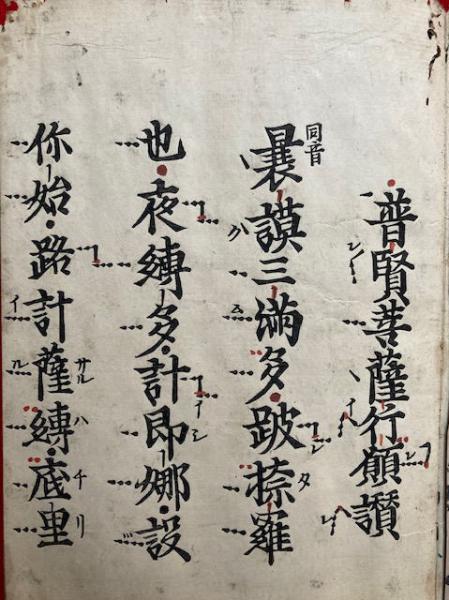 普賢菩薩行願讃
同音
曩謨三滿多跛捺羅
也夜縛多計即娜設
你始路計薩縛底里